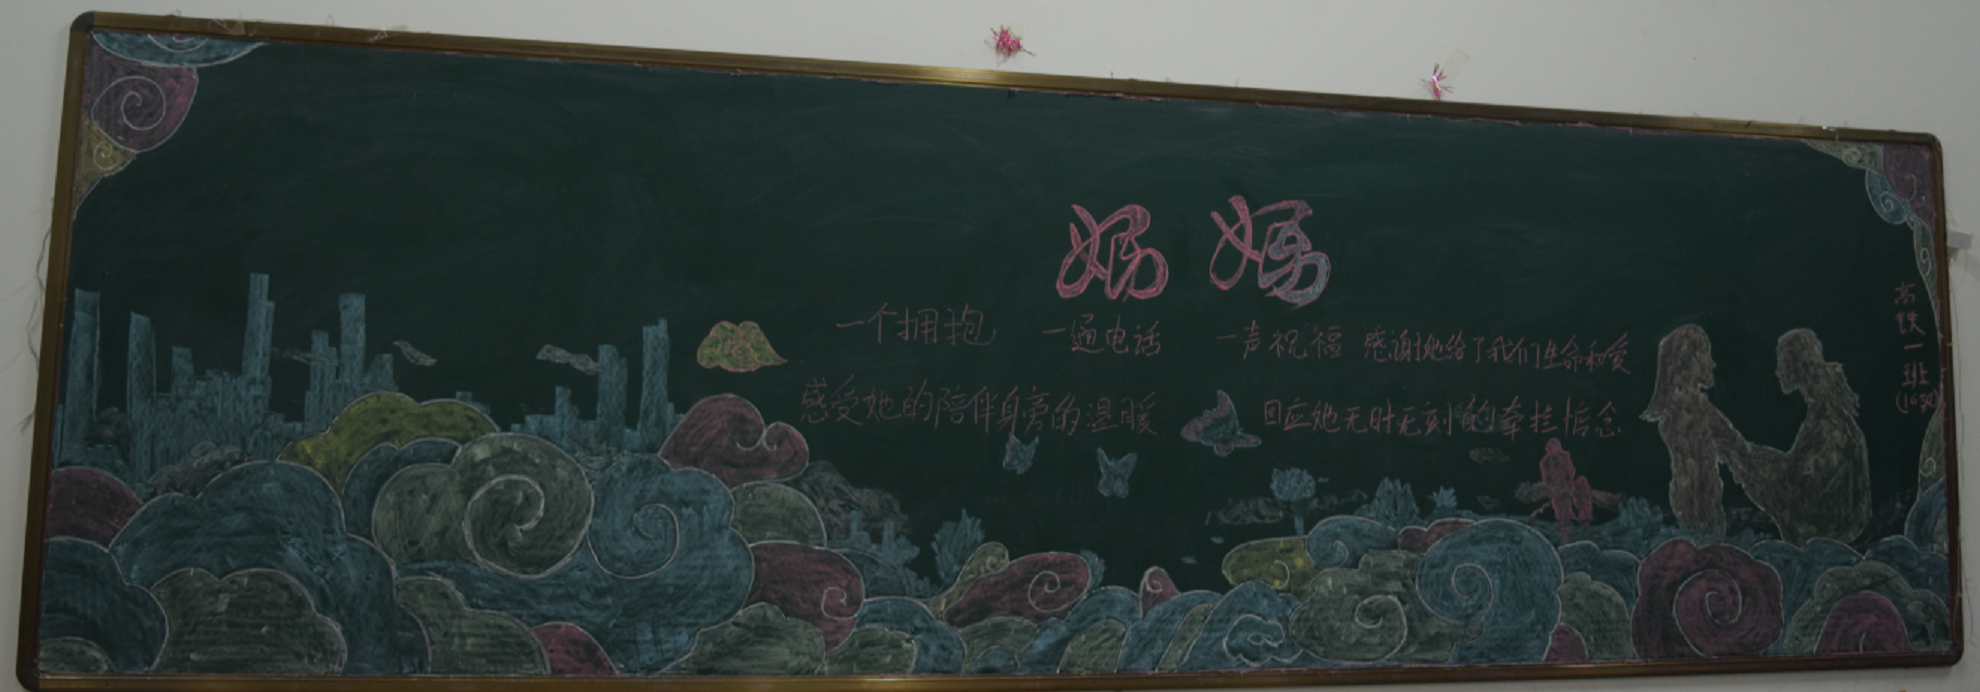 妈妈
一个拥抱 一通电话 一声祝福 感谢她给了我们生命和爱
感受她的陪伴身旁的温暖 回应她无时无刻的牵挂惦念
高铁一班